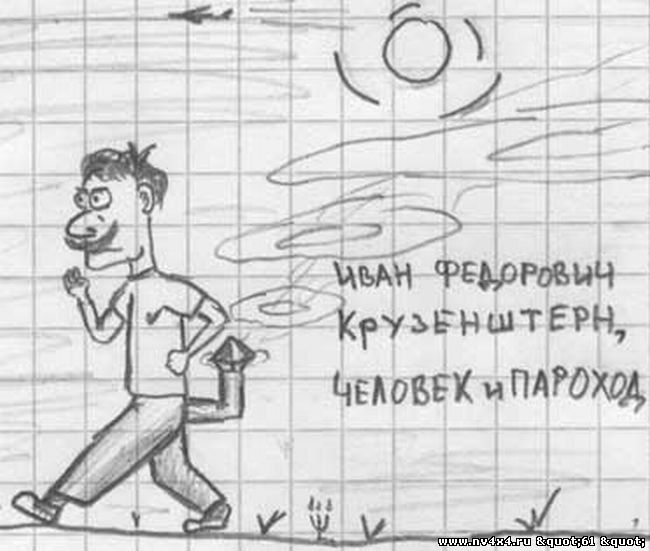 ИВАН ФЕДОРОВИЧ
КРУЗЕНШТЕРН,
ЧЕЛОВЕК и ПАРОХОД
www.nv4x4.ru &quot;61 &quot;